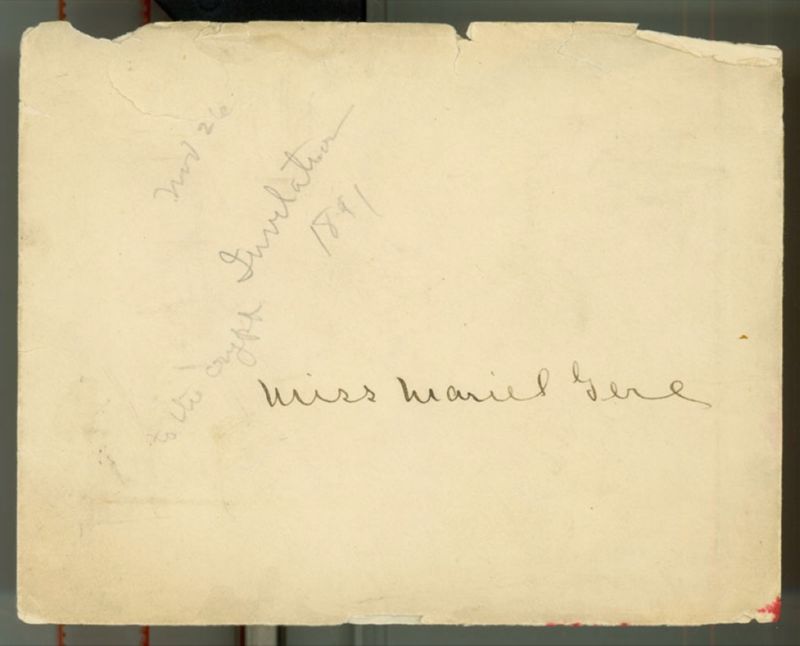 Nov 26
Invitation
1891
to the crypt
Miss Mariel Gere